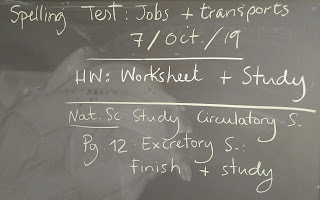 Spelling Test: Jobs + transports
7/Oct./19
HW: Worksheet + Study
Nat. Sc Study Circulatory S.
Pg. 12. Excretory S.:
Finish + study